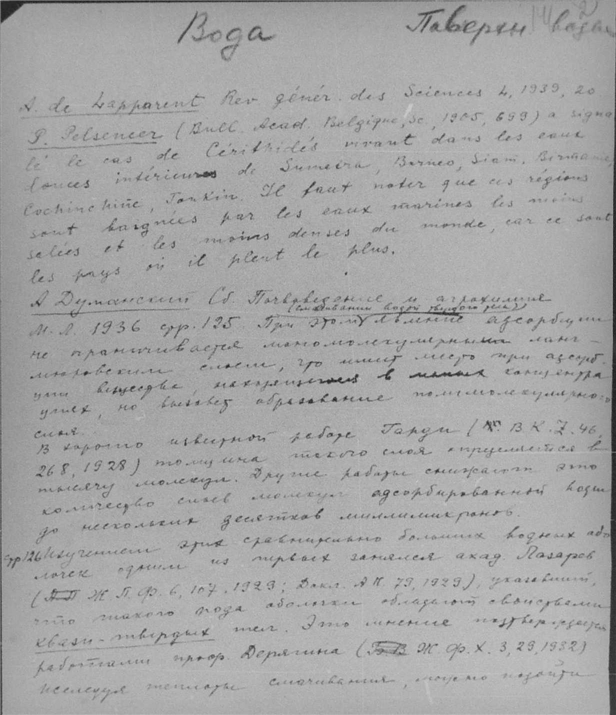 Вода Поверхн воды
A. de Lapparent Rev. génér. des Sciences 4, 1939, 20
P. Pelseneer (Bull. Acad. Belgique, Sc., 1905, 699) a signa
lé le cas de Cérithidés vivant dans les eaux
douces intérieures de Sumatra, Borneo, Siam, Birmanie,
Cochinchine, Tonkin. Il faut noter que ces régions
sont baignées par les eaux marines les moins
salées et les moins denses du monde, car ce sont
les pays où il pleut le plus.
А Думанский Сб Почвоведение и агрохимия
(смачивании водой твердого тела)
М. Л. 1936 стр. 125. При этом явление адсорбции
не ограничивается мономолекулярным ланг-
мюровским слоем, что имеет место при адсорб-
ции вещества, находящегося в малых концентра
циях, но вызовет образование полимолекулярного
слоя.
В хорошо известной работе Гарди (В К. Z. 46,
268, 1928) толщина такого слоя определяется в
тысячу молекул. Другие работы снижают это
количество слоев молекул адсорбированной воды
до нескольких десятков миллимикронов.
стр 126 Изучением этих сравнительно больших водных обо
лочек одним из первых занялся акад. Лазарев
(Ж П. Ф. 6, 107, 1929; Докл. АН. 79, 1929), указавший,
что такого рода оболочки обладают свойствами
квази-твердых тел. Это мнение подтверждается
работами проф. Дерягина (Ж. Ф. Х. 3, 29, 1932)
исследуя теплоты смачивания, можно подойти